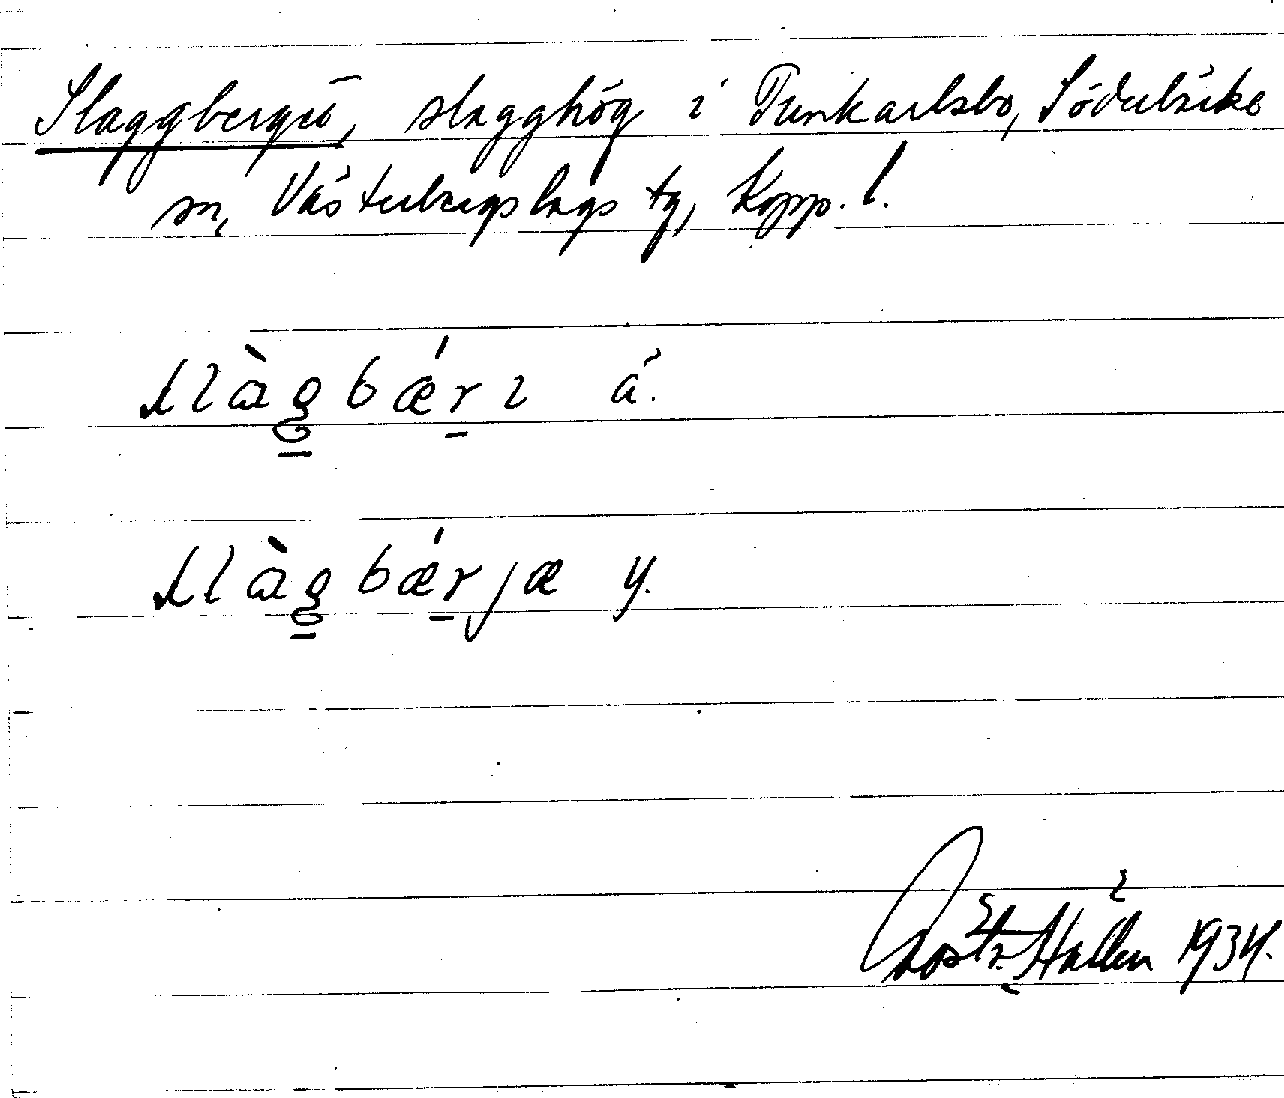 Slaggberget, slagghög i Tunkarlsbo, Söderbärke
sn, Västerbergslags tg, Kopp. l.
slàgbǽrı ä.
slàgbǽrjæ y.
Hållén 1934.